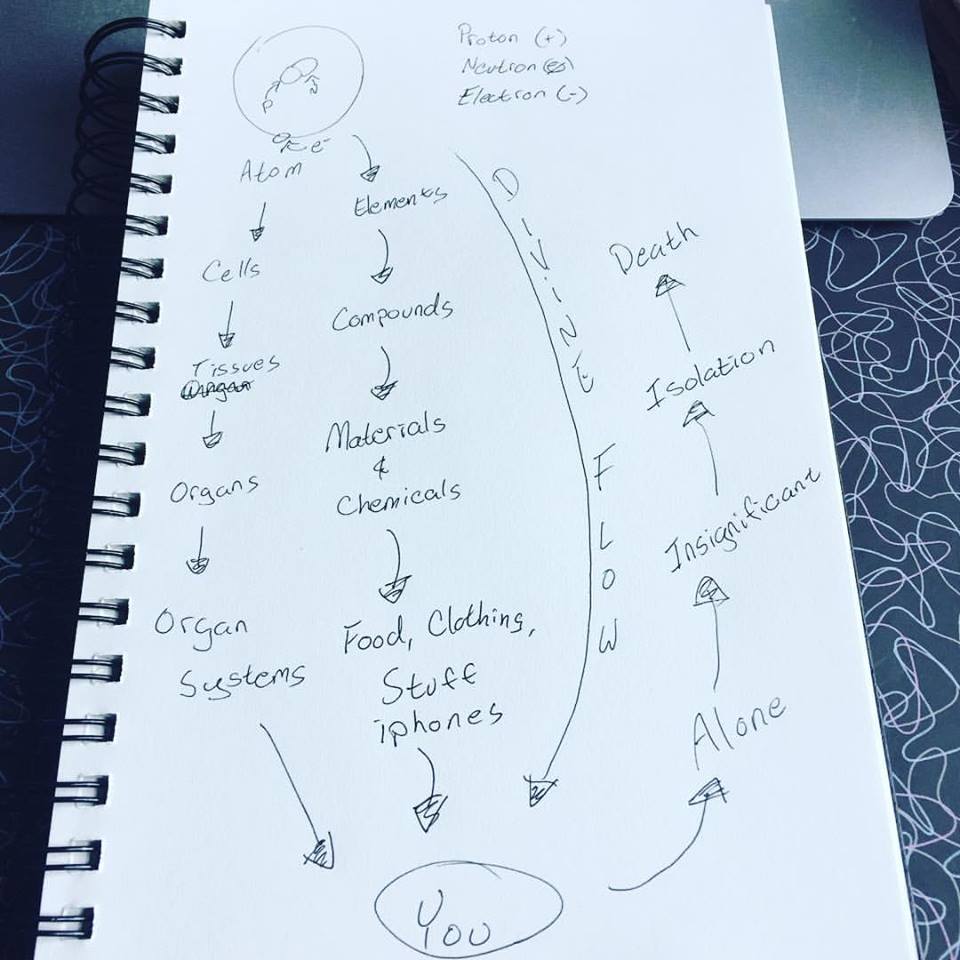 Proton (+)
Neutron (∅)
Electron (-)
P
N
e-
Atom
Cells
Tissues
Organs
Organ
Systems
Elements
Compounds
Materials
&
Chemicals
Food, Clothing,
Stuff
iphones
DIVINE FLOW
You
Alone
Insignificant
Isolation
Death